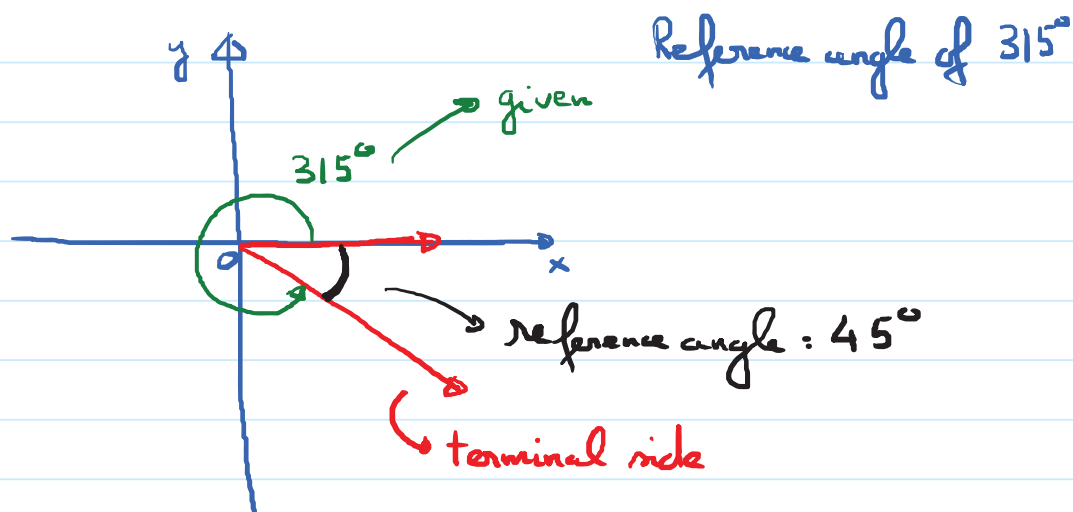 Reference angle of 315°
y
given
315°
O
x
reference angle : 45°
terminal side